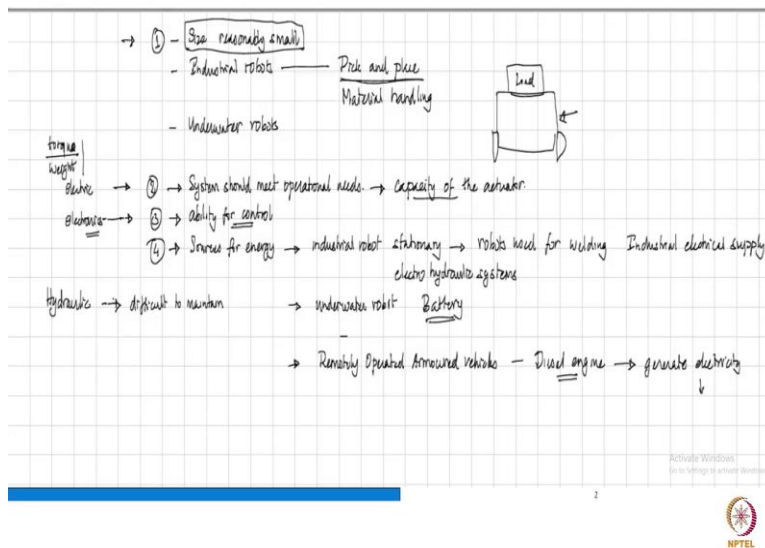 → ① – Size reasonably small
- Industrial robots —— Pick and place
Material handling
Load
- Underwater robots
torque
weight
electric → ② → System should meet operational needs. → capacity of the actuator.
electronics → ③ → ability for control
④ → Sources for energy → industrial robot stationary → robots used for welding Industrial electrical supply
electro hydraulic systems
Hydraulic → difficult to maintain → underwater robot Battery
–
→ Remotely Operated Armoured vehicles – Diesel engine → generate electricity
↓
Activate Windows
Go to Settings to activate Windows
2
NPTEL